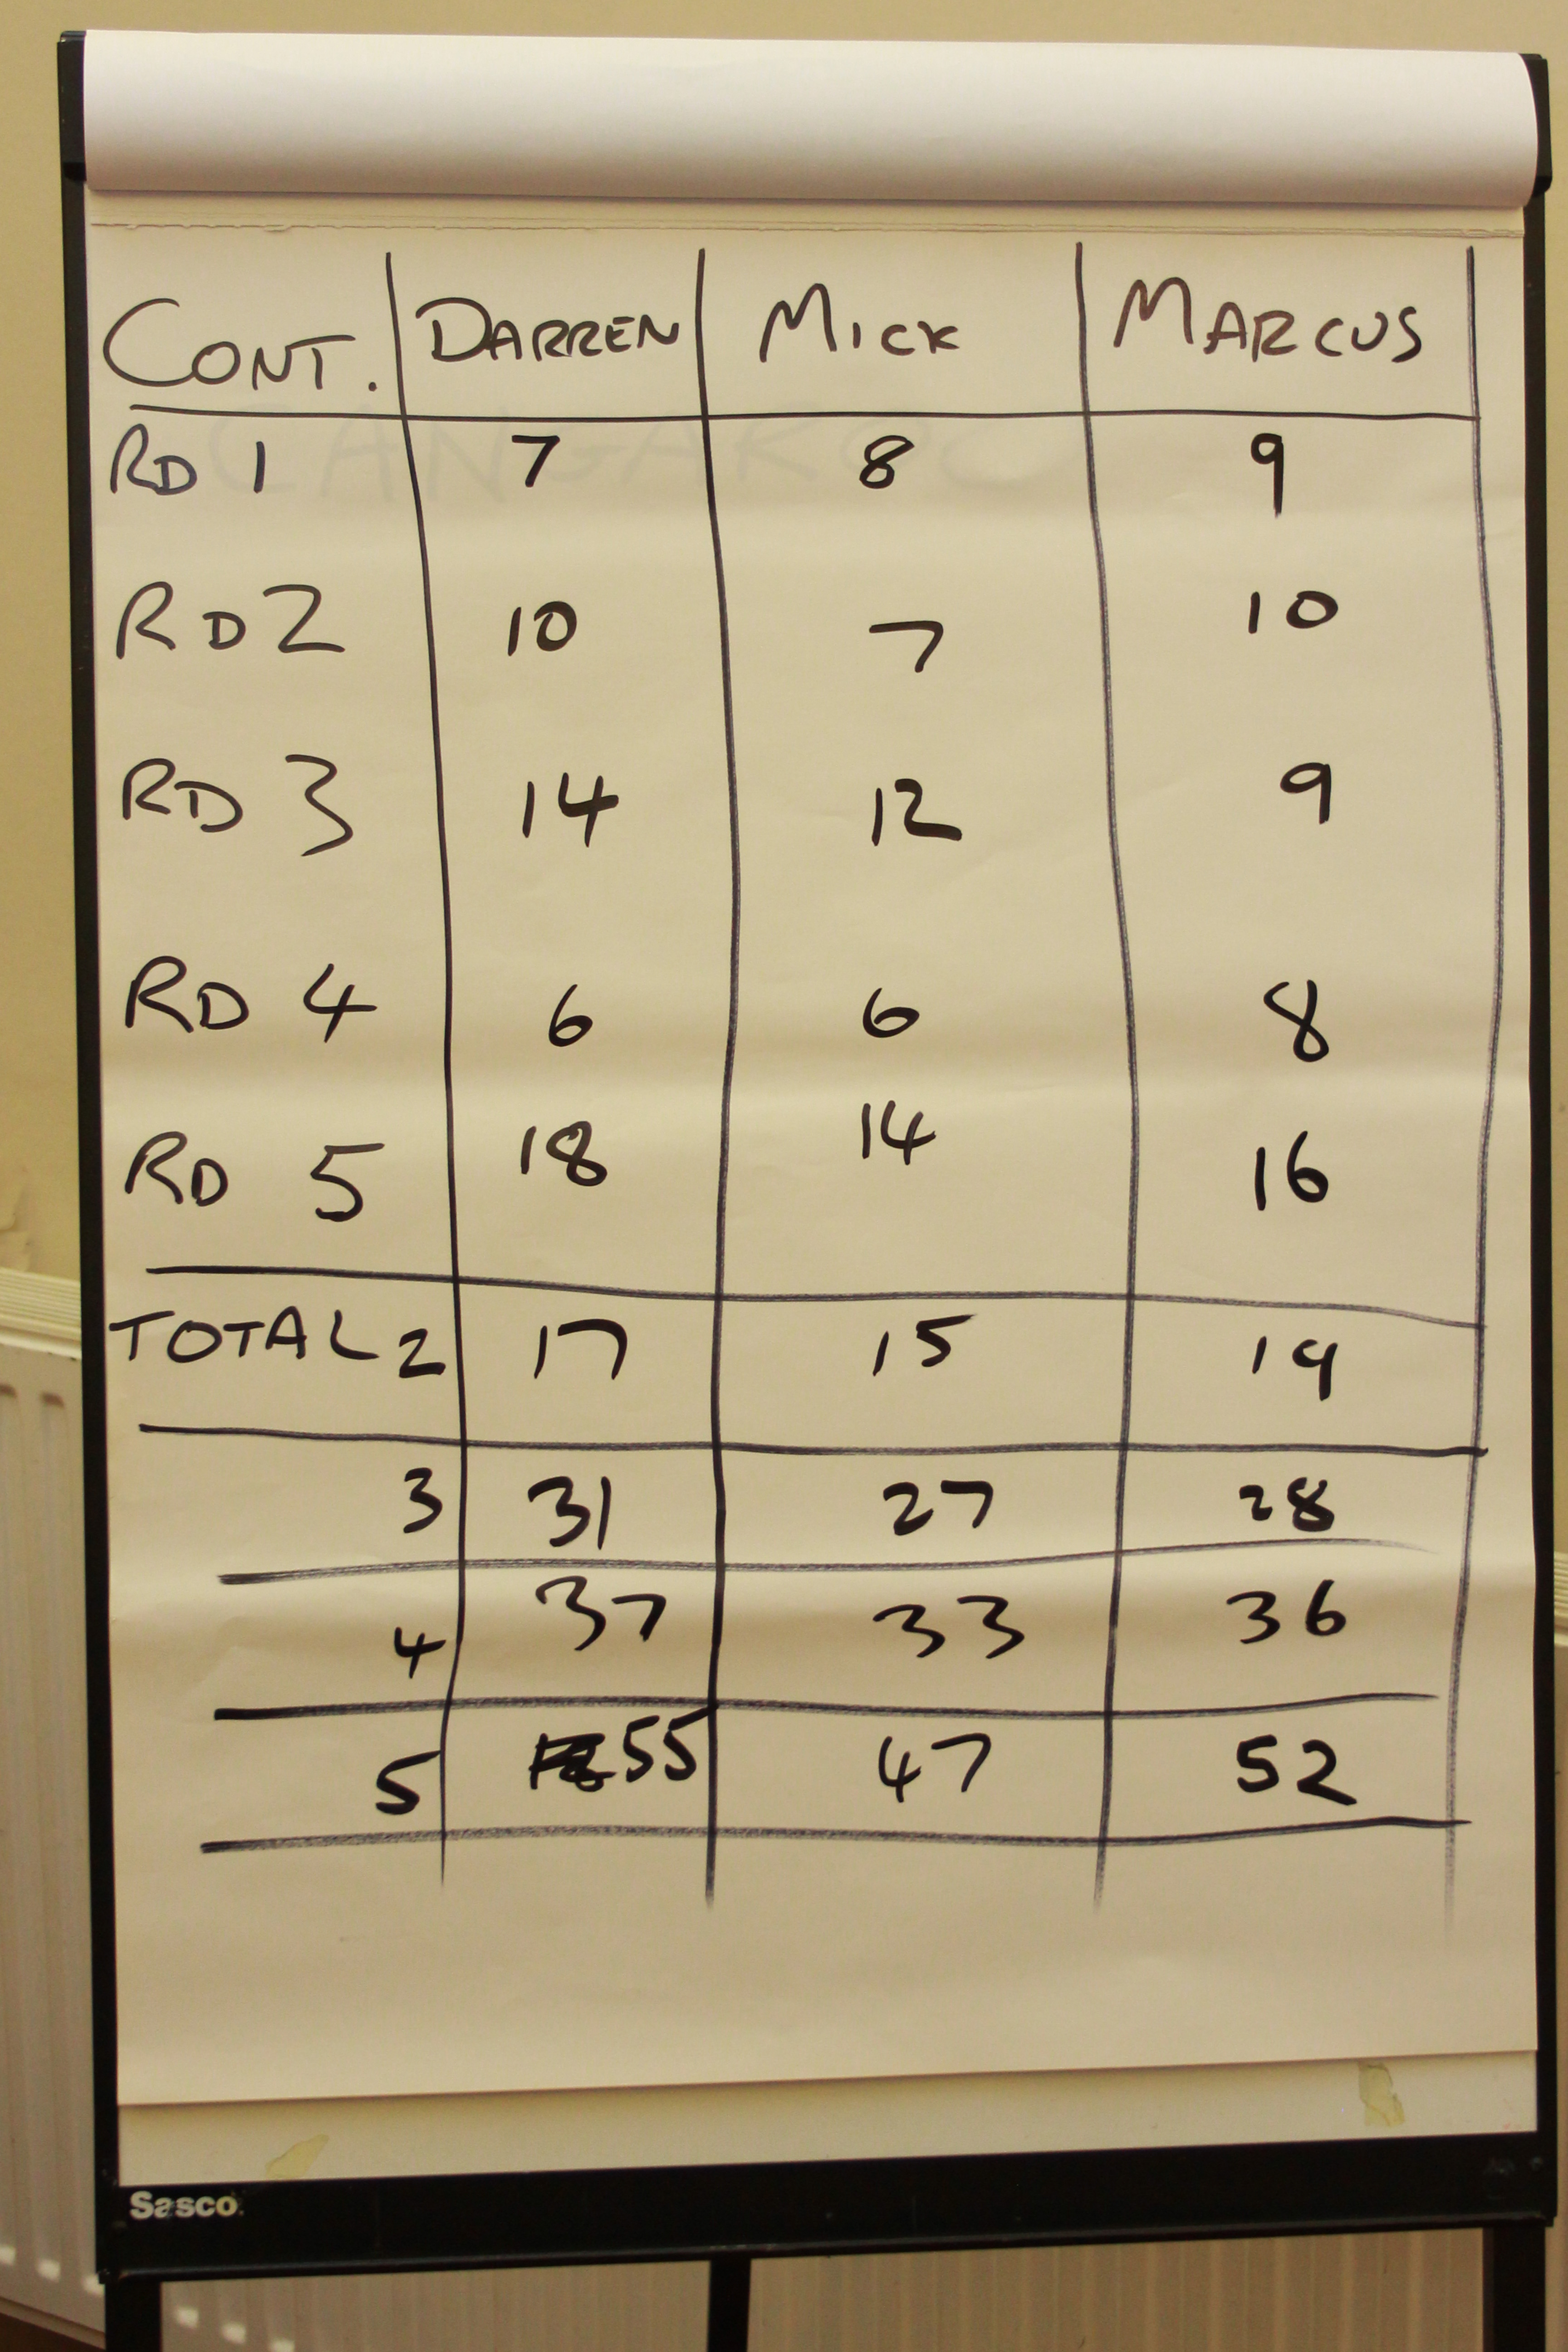 CONT. DARREN MICK MARCUS
RD 1 7 8 9
RD 2 10 7 10
RD 3 14 12 9
RD 4 6 6 8
RD 5 18 14 16
TOTAL 2 17 15 19
3 31 27 28
4 37 33 36
5 55 47 52
Sasco